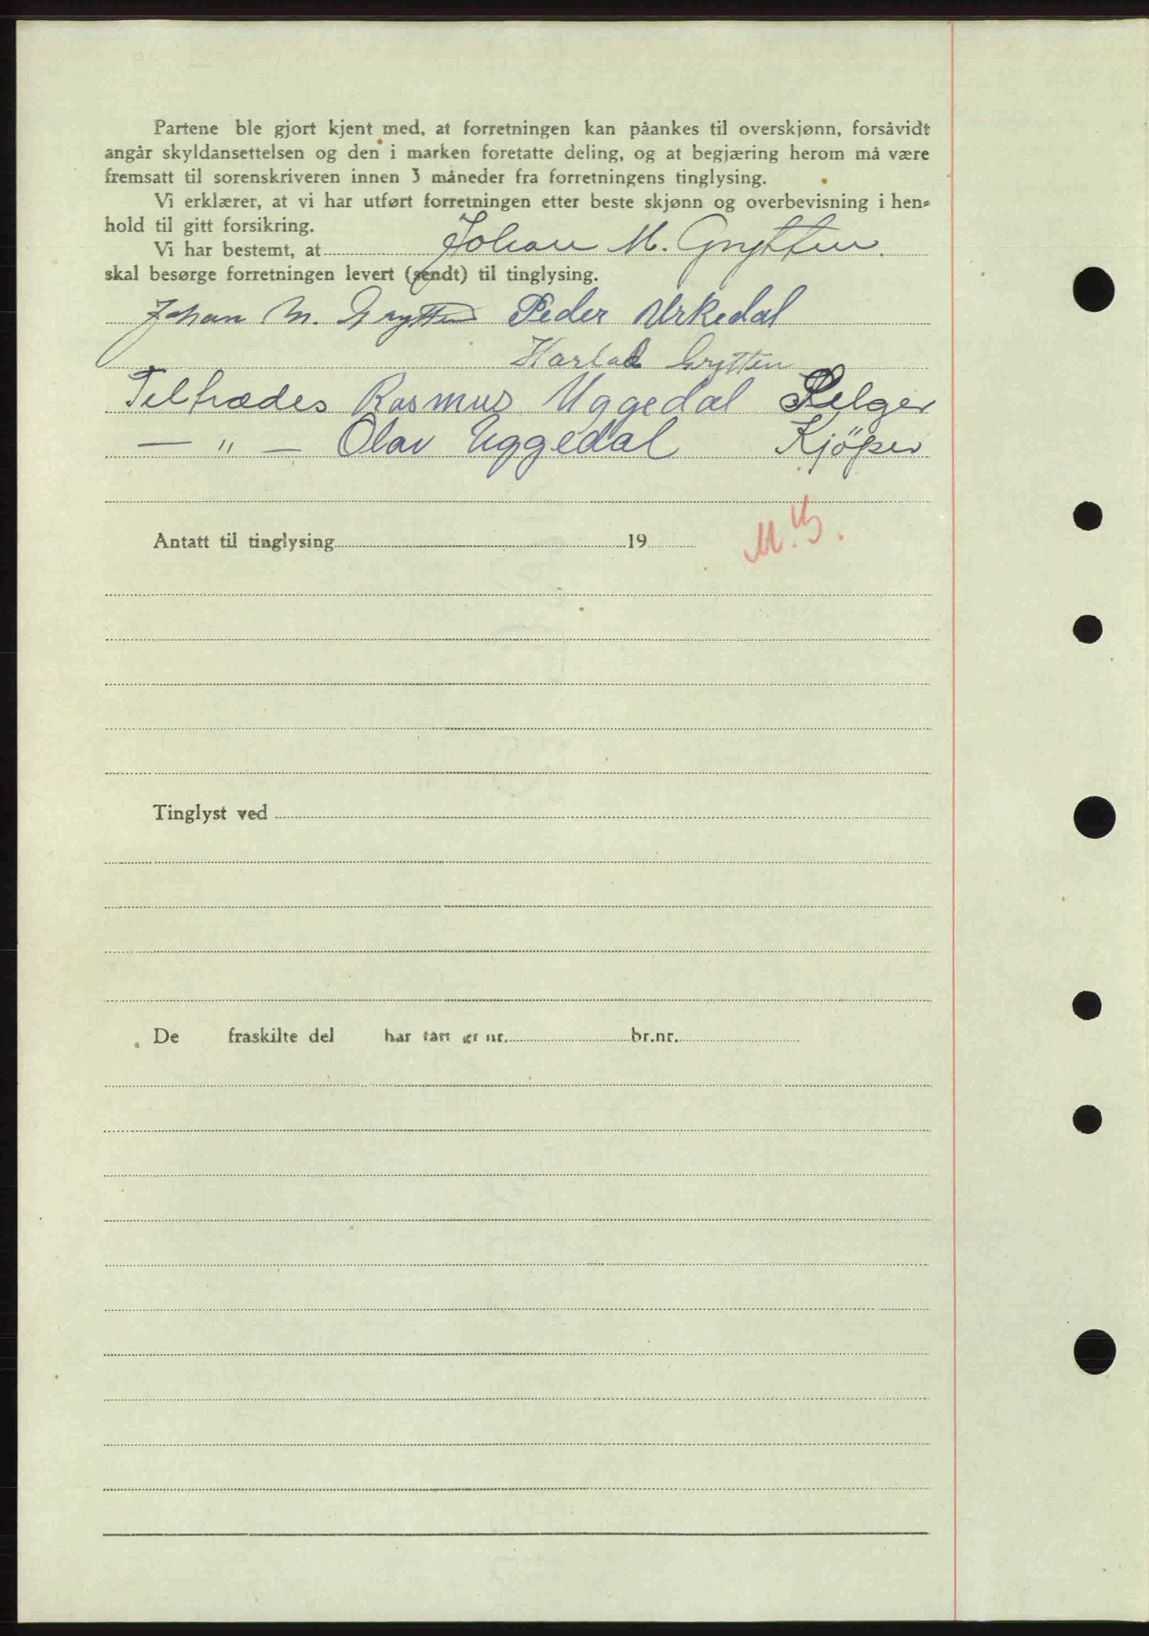 Partene ble gjort kjent med, at forretningen kan påankes til overskjønn, forsåvidt
angår skyldansettelsen og den i marken foretatte deling, og at begjæring herom må være
fremsatt til sorenskriveren innen 3 måneder fra forretningens tinglysing.
Vi erklærer, at vi har utført forretningen etter beste skjønn og overbevisning i hen=
hold til gitt forsikring.
Vi har bestemt, at Johan M. Grytten.
skal besørge forretningen levert (sendt) til tinglysing.
Johan M. Grytten Peder Urkedal
Grytten
Tiltrædes Rasmus Uggedal Selger
— " — Olav Uggedal Kjöper
Antatt til tinglysing 19
Tinglyst ved
De fraskilte del har fått gr nr. br.nr.